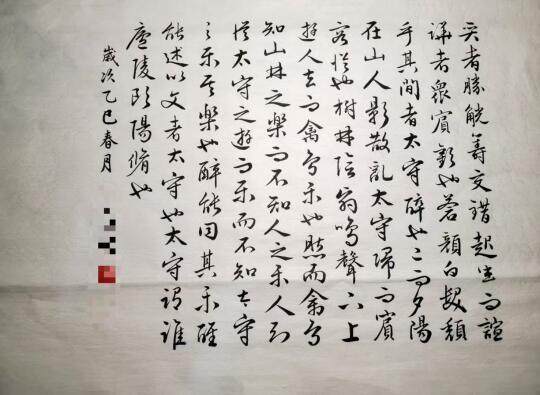 奕者勝觥籌交錯起坐而諠
譁者衆賓歡也蒼顔白髮頹
乎其間者太守醉也已而夕陽
在山人影散亂太守歸而賓
客從也樹林陰翳鳴聲下上
遊人去而禽鳥樂也然而禽鳥
知山林之樂而不知人之樂人知
從太守之遊而樂而不知太守
之樂其樂也醉能同其樂醒
能述以文者太守也太守謂誰
廬陵歐陽脩也
歲次乙巳春月